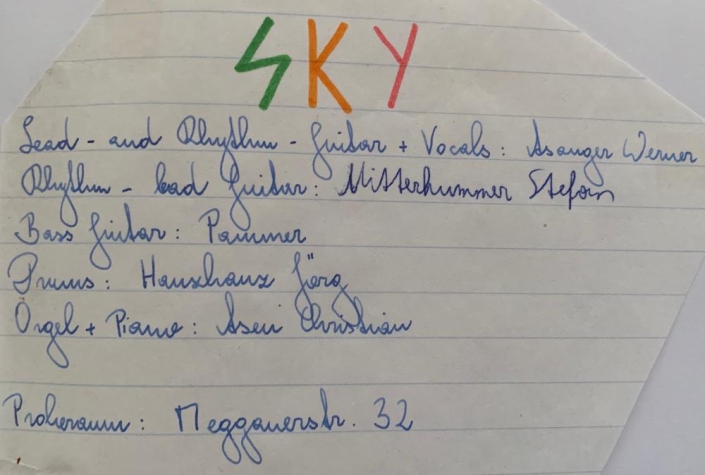 SKY
Lead - and Rhythm - Guitar + Vocals: Asanger Werner
Rhythm - lead Guitar: Mitterhummer Stefan
Bass Guitar: Pammer
Drums: Jörg
Orgel + Piano: Christian
Proberaum: Meggauerstr. 32